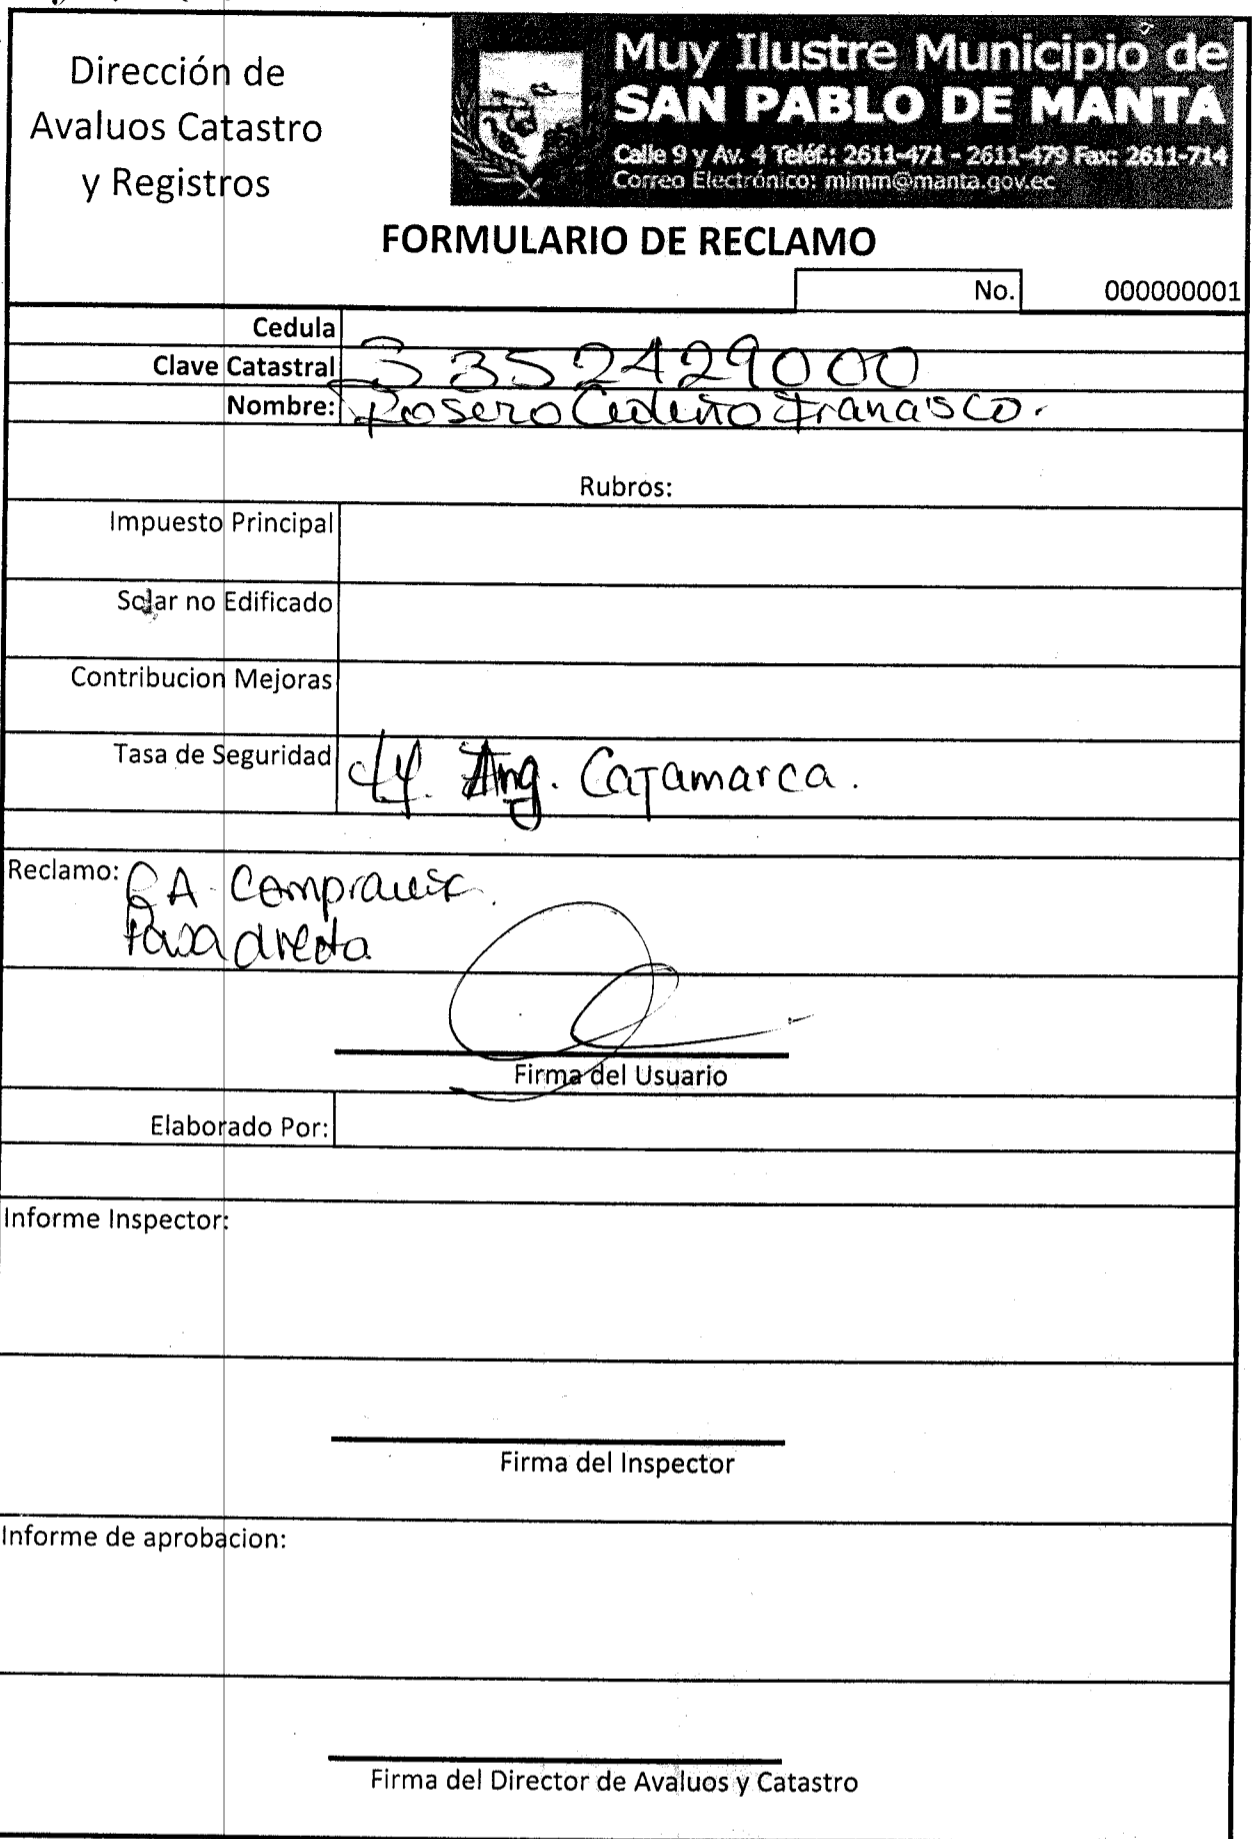 Dirección de
Avaluos Catastro
y Registros
Muy Ilustre Municipio de
SAN PABLO DE MANTA
Calle 9 y Av. 4 Teléf.: 2611-471 - 2611-479 Fax: 2611-714
Correo Electrónico: mimm@manta.gov.ec
FORMULARIO DE RECLAMO
No. 000000001
Cedula
Clave Catastral 3352429000
Nombre: Rosero Cedeño Francisco.
Rubros:
Impuesto Principal
Solar no Edificado
Contribucion Mejoras
Tasa de Seguridad Ing. Cajamarca.
Reclamo: CA
directa
Firma del Usuario
Elaborado Por:
Informe Inspector:
Firma del Inspector
Informe de aprobacion:
Firma del Director de Avaluos y Catastro